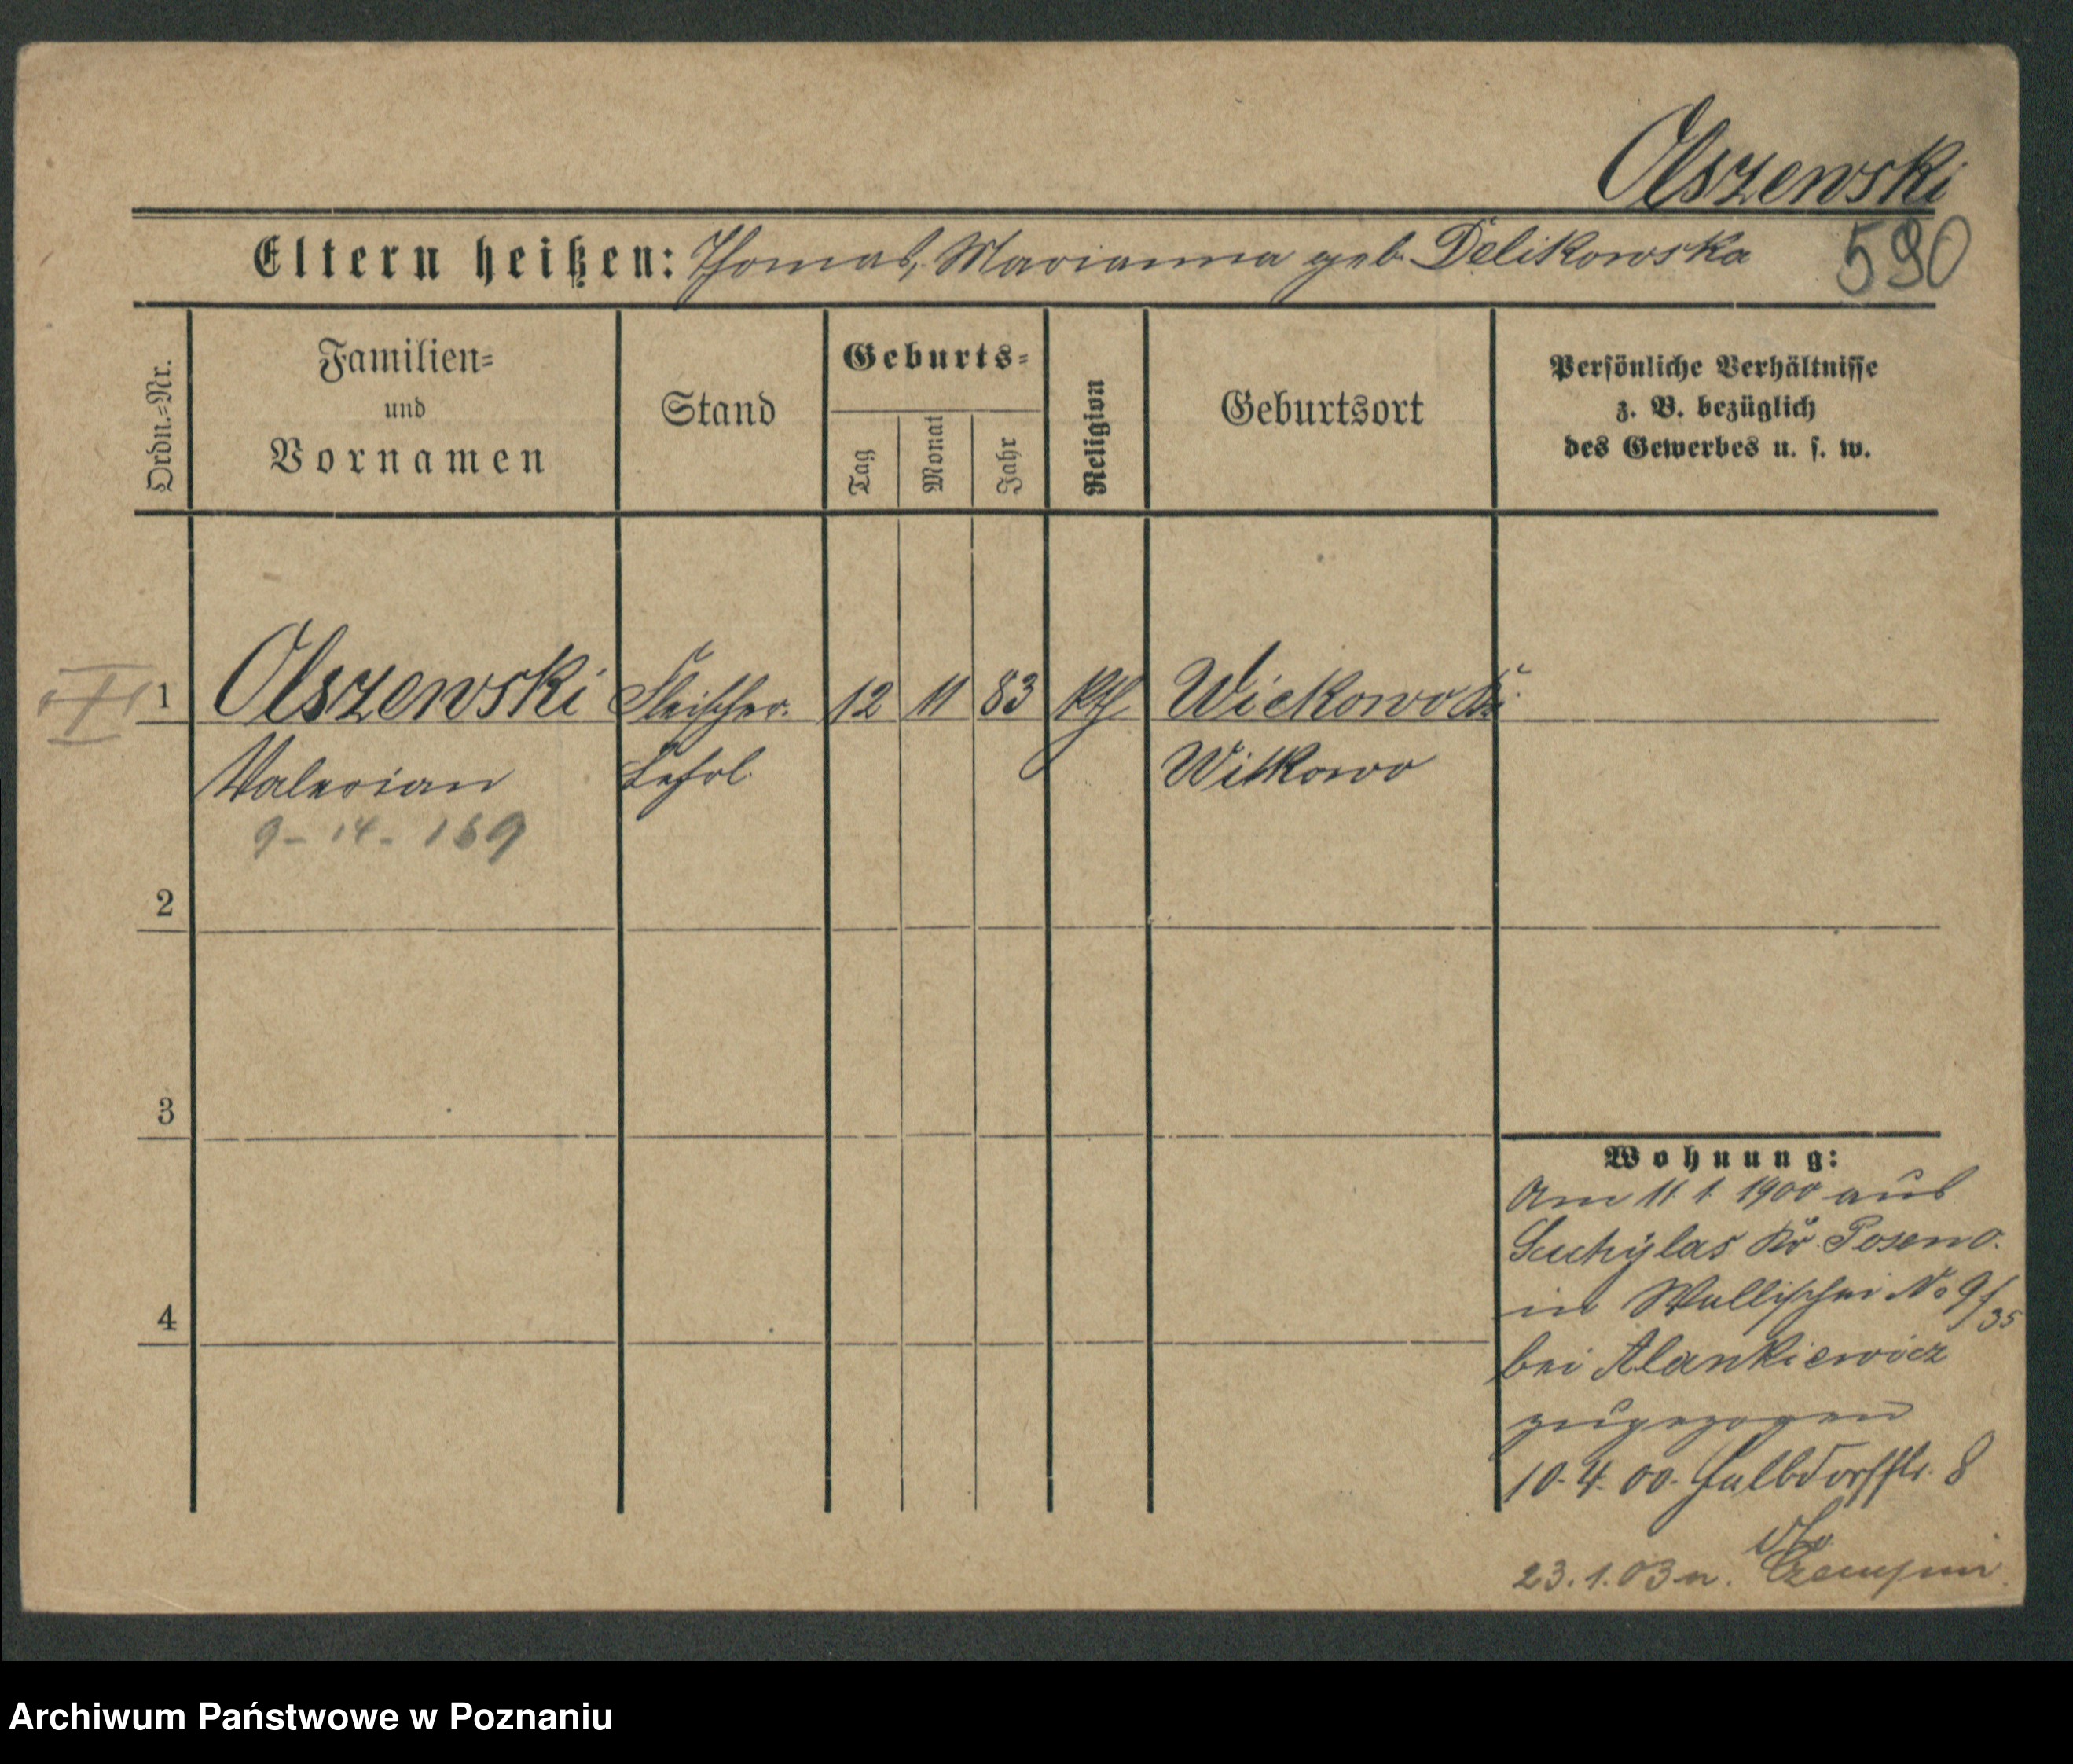 Olszewski
Eltern heißen: Thomas, Marianna geb. Delikowska 590
Ordn.=Nr.
Familien=
und
Vornamen
Stand
Geburts=
Tag
Monat
Jahr
Religion
Geburtsort
Persönliche Verhältnisse
z. B. bezüglich
des Gewerbes u. s. w.
1 Olszewski Fleischer. 12 11 83 kth Wiekowo Kr.
Valerian Lehrl. Witkowo
9-14-169
2
3
4
Wohnung:
Am 11 1 1900 aus
Suchylas Kr. Posen O.
in Wallischei No 9/35
bei Alankiewicz
zugezogen
10. 4. 00. Halbdorfstr. 8
23. 1. 03 n. Czempin.
Archiwum Państwowe w Poznaniu